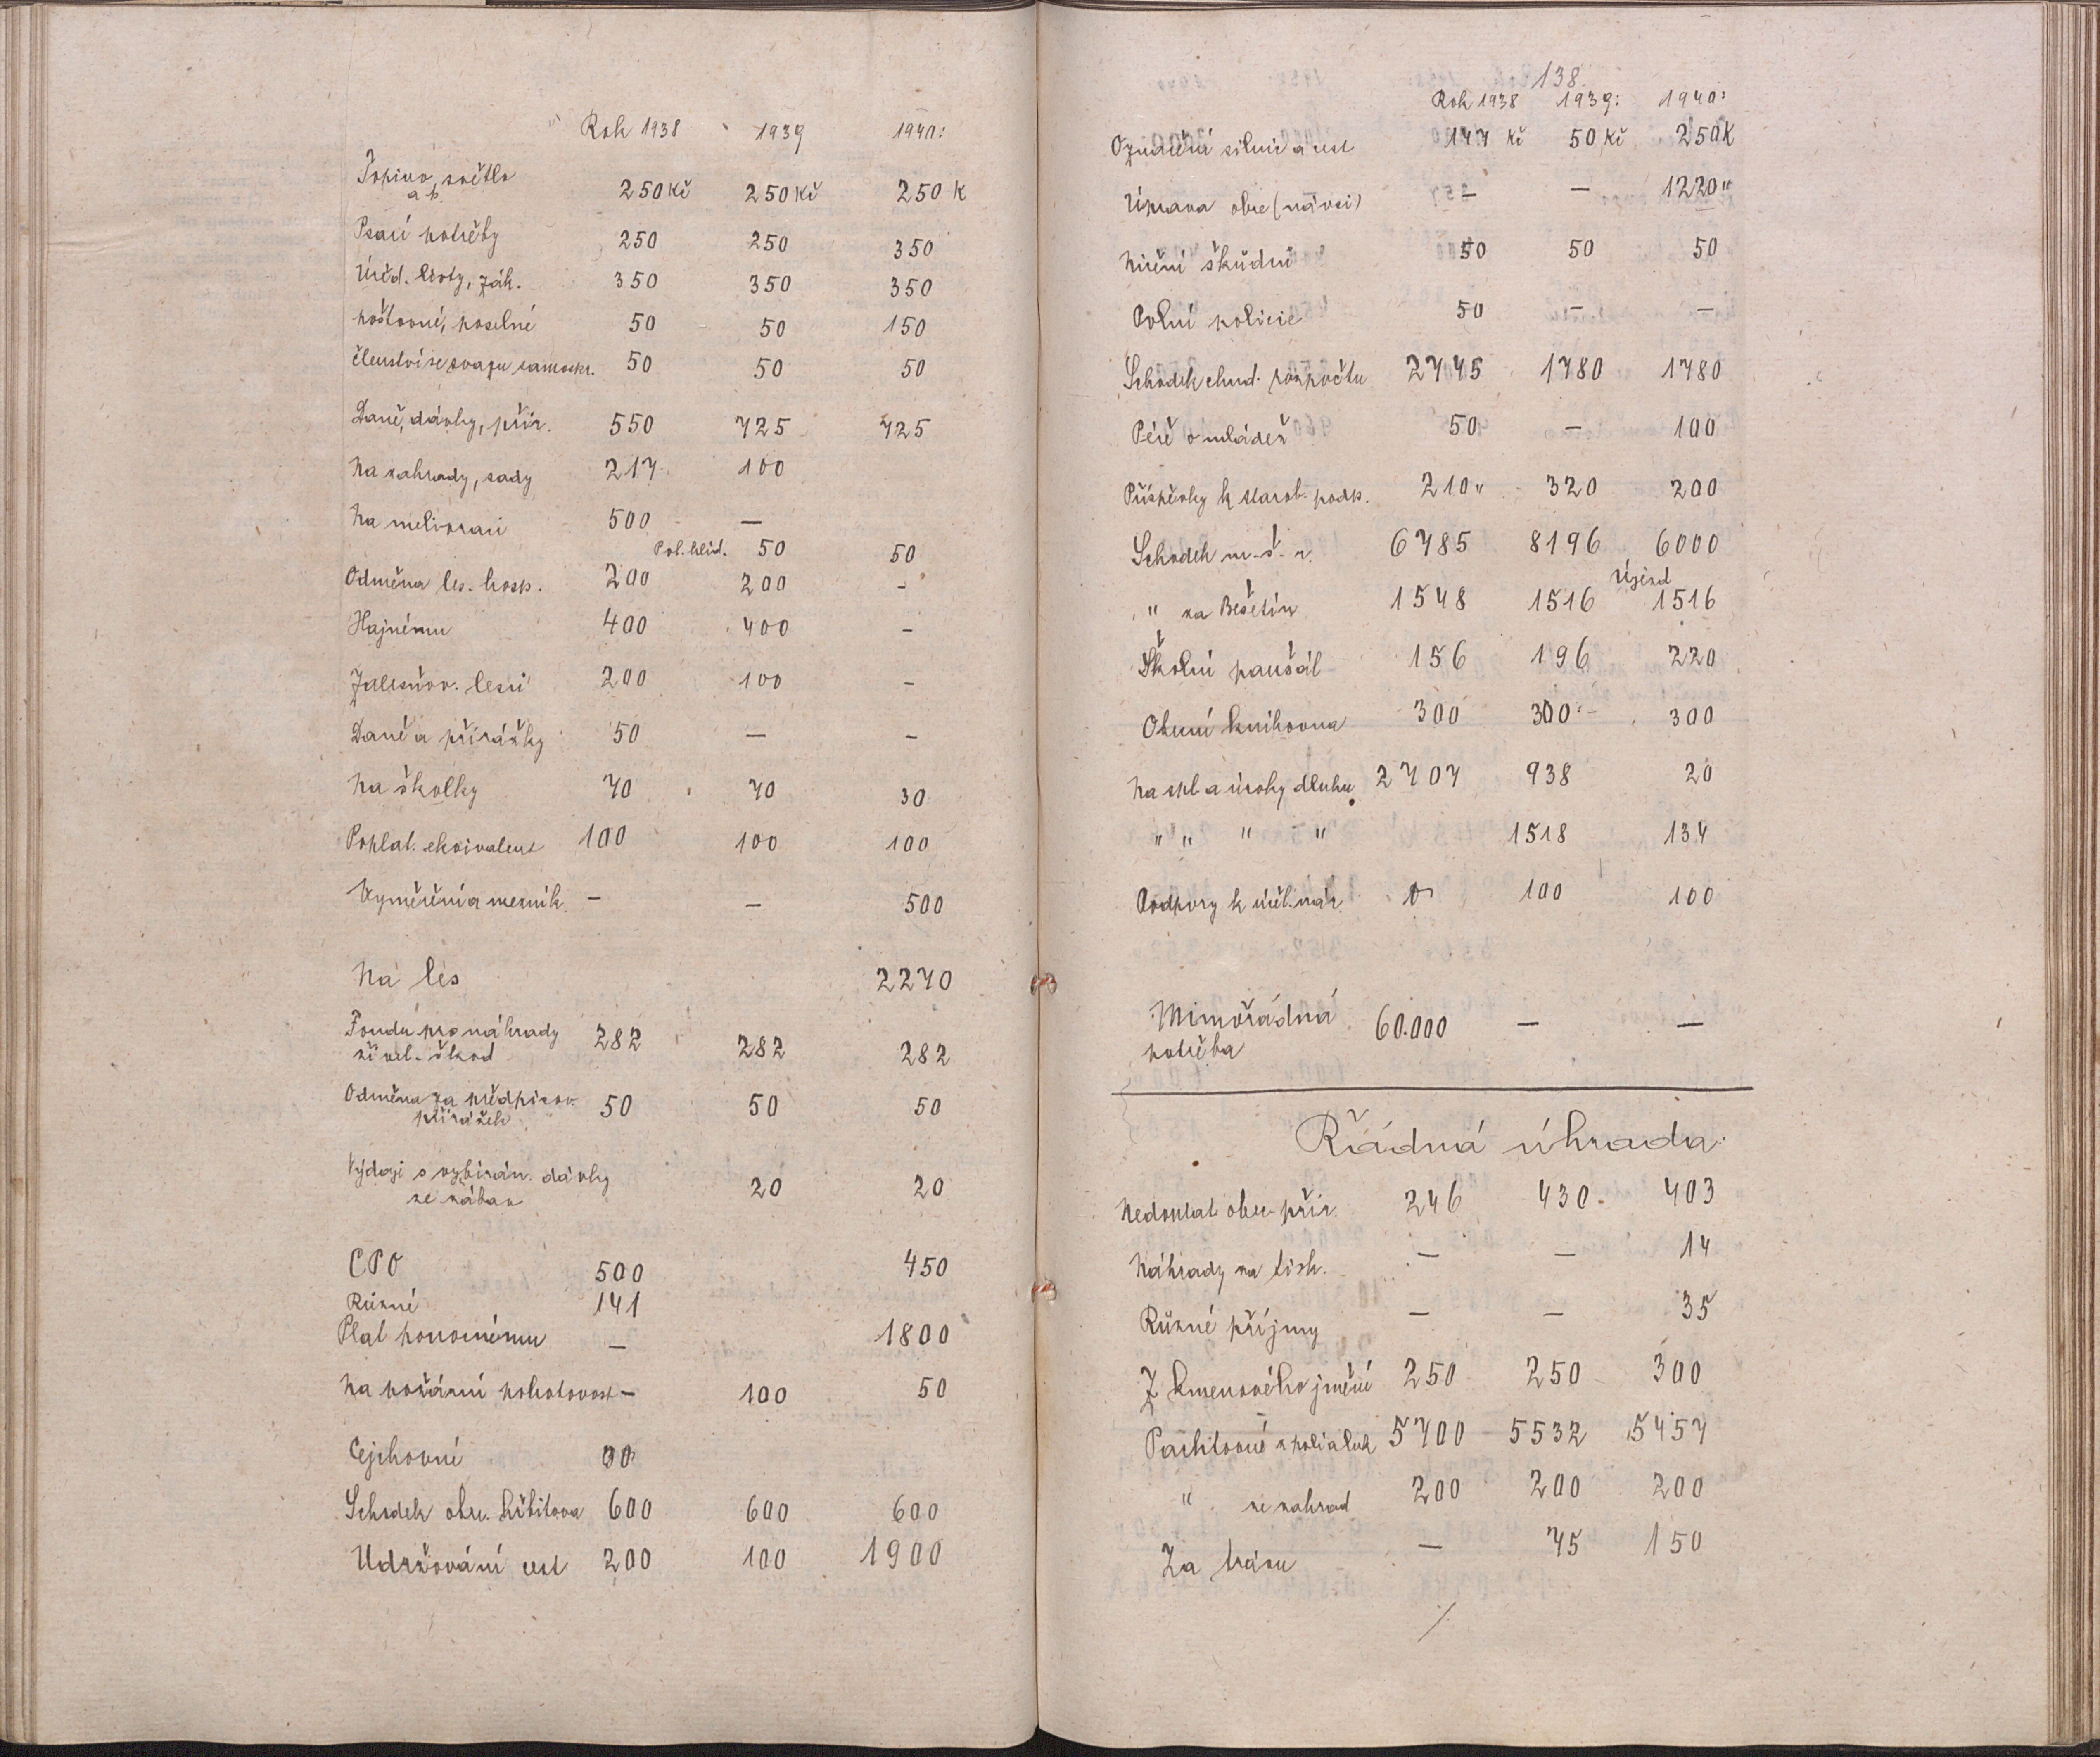 Rok 1938 1939 1940:
Topivo, světlo
a p. 250 Kč 250 Kč 250 K
Psací potřeby 250 250 350
Úřed. listy, zák. 350 350 350
poštovné, poselné 50 50 150
členství se svazu samospr. 50 50 50
Daně, dávky, přir. 550 725 725
Na zahrady, sady 217 100
Na melioraci 500 —
Pol. hlíd. 50 50
Odměna les. hosp. 200 200 -
Hajnému 400 400 -
Zalesňov. lesů 200 100 -
Daně a přirážky 50 — -
Na školky 70 70 30
Poplat. ekvivalent 100 100 100
Vyměření a mezník. - — 500
Na les 2270
Fondu pro náhrady
živel. škod 282 282 282
Odměna za předpisov.
přirážek 50 50 50
Výdaji s vybírán. dávky
ze zábav 20 20
CPO 500 450
Různé 141
Plat ponocnému — 1800
Na požární pohotovost - 100 50
Cejchovné
Schodek obec. hřbitova 600 600 600
Udržování cest 200 100 1900
138.
Rok 1938 1939: 1940:
Označení silnic a cest 177 Kč 50 Kč 250 K
Úprava obce (návsi) — — 1220 "
Ničení škůdců 50 50 50
Polní policie 50 — —
Schodek chud. rozpočtu 2745 1780 1780
Péče o mládež 50 — 100
Příspěvky k starob. podp. 210 " 320 200
Schodek m. š. r. 6785 8196 6000
Újezd
" na Bešetín 1548 1516 1516
Školní paušál 156 196 220
Obecní knihovna 300 300 300
Na spl. a úroky dluhu 2707 938 20
" " " " 1518 134
Podpory k účel. nár. 0 100 100
Mimořádná
potřeba 60.000 — —
Řádná úhrada:
Nedoplat. obec. přir. 246 430 403
Náhrady za tisk. — — 14
Různé příjmy — — 35
Z kmenového jmění 250 250 300
Pachtovné z polí a luk 5700 5532 5457
" ze zahrad 200 200 200
Za trávu — 75 150
/.